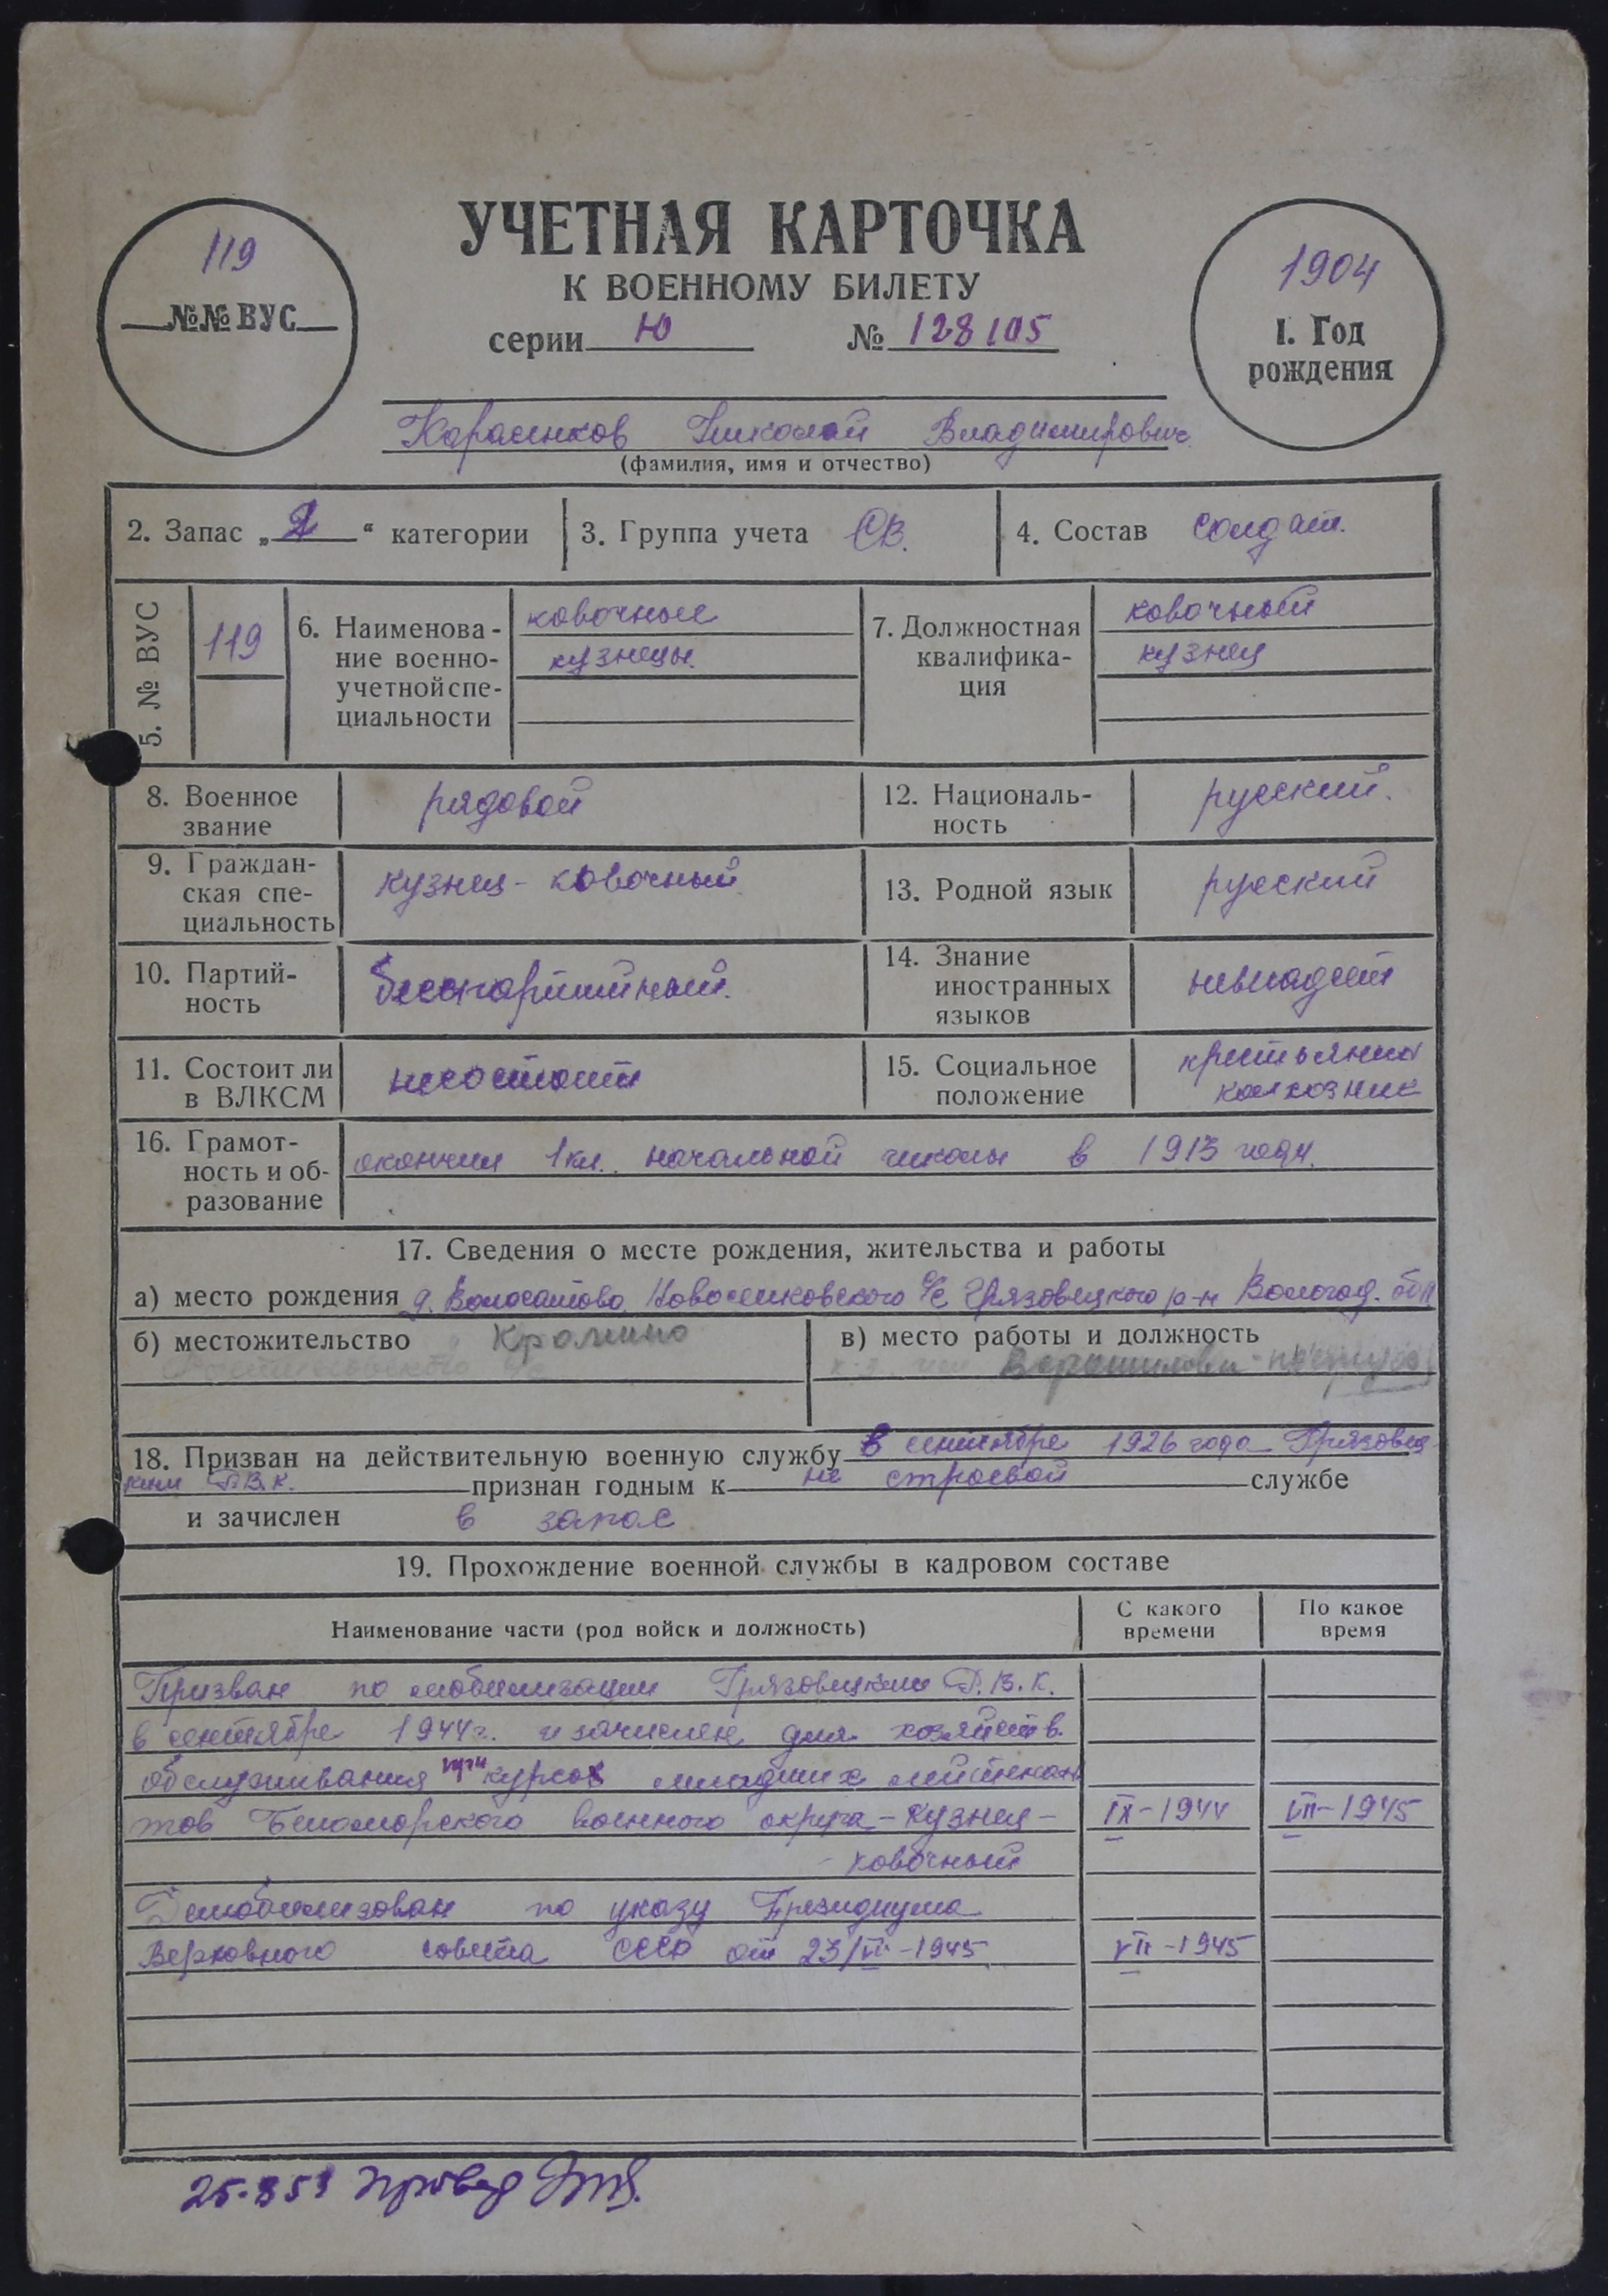 119
№№ ВУС
УЧЕТНАЯ КАРТОЧКА
К ВОЕННОМУ БИЛЕТУ
серии Ю № 128105
1904
1. Год
рождения
Карасенков Николай Владимирович
(фамилия, имя и отчество)
2. Запас „2“ категории
3. Группа учета СВ.
4. Состав солдат.
5. № ВУС
119
6. Наименова-
ние военно-
учетной спе-
циальности
ковочные
кузнецы.
7. Должностная
квалифика-
ция
ковочный
кузнец
8. Военное
звание
рядовой
12. Националь-
ность
русский.
9. Граждан-
ская спе-
циальность
кузнец - ковочный
13. Родной язык
русский
10. Партий-
ность
беспартийный.
14. Знание
иностранных
языков
невладеет
11. Состоит ли
в ВЛКСМ
несостоит
15. Социальное
положение
крестьянин
колхозник
16. Грамот-
ность и об-
разование
окончил 1 кл. начальной школы в 1913 году.
17. Сведения о месте рождения, жительства и работы
а) место рождения д. Волосатово Новоселковского с/с Грязовецкого р-н Вологод. обл
б) местожительство
в) место работы и должность
Ворошилова
18. Призван на действительную военную службу в сентябре 1926 года Грязовец-
ким Р.В.К. признан годным к не строевой службе
и зачислен в запас
19. Прохождение военной службы в кадровом составе
Наименование части (род войск и должность)
С какого
времени
По какое
время
Призван по мобилизации Грязовецким Р.В.К.
в сентябре 1944 г. и зачислен для хозяйств.
обслуживания при курсах младших лейтенан-
тов Беломорского военного округа - кузнец - IX-1944 VII-1945
ковочный
Демобилизован по указу Президиума
Верховного совета СССР от 23/VI-1945 VII-1945